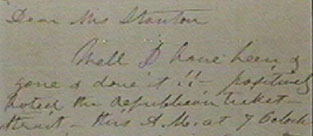 Dear Mrs Stanton
Well I have been &
gone & done it!! – positively
voted the Republican ticket –
strait – this A.M. at 7 Oclock